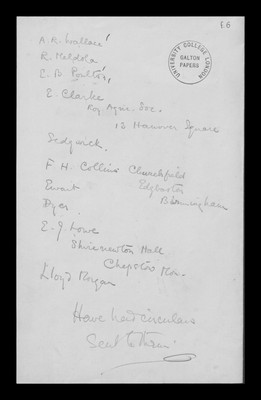 f.6
UNIVERSITY COLLEGE LONDON
GALTON
PAPERS
A. R. Wallace
R. Meldola
E. B. Poulton,
E. Clarke
Roy. Agric. Soc.
13 Hanover Square
Sedgwick.
F. H. Collins Churchfield
Edgbaston
Birmingham
Ewart
Dyer
E. J. Lowe
Shirenewton Hall
Chepstow Mon.
Lloyd Morgan
Have had circulars
Sent to them